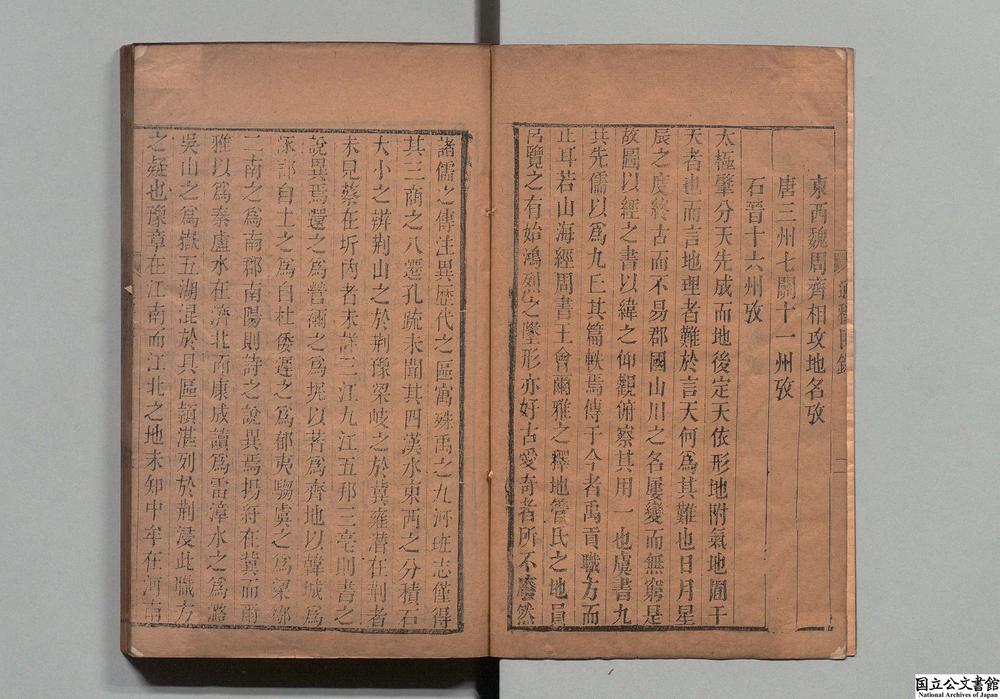 東西魏周齊相攻地名攷
唐三州七關十一州攷
石晉十六州攷
太極肇分天先成而地後定天依形地附氣地囿于
天者也而言地理者難於言天何爲其難也日月星
辰之度終古而不易郡國山川之名屢變而無窮是
故圖以經之書以緯之仰觀俯察其用一也虞書九
共先儒以爲九丘其篇軼焉傳于今者禹貢職方而
止耳若山海經周書王會爾雅之釋地管氏之地員
呂覽之有始鴻烈之墬形亦好古愛奇者所不廢然
諸儒之傳注異歷代之區寓殊禹之九河班志僅得
其三商之八遷孔疏未聞其四漢水東西之分積石
大小之辨荆山之於荆豫梁岐之於冀雍潜在荆者
未見蔡在圻内者未詳三江九江五邦三亳則書之
說異焉還之爲營禰之爲坭以著爲齊地以韓城爲
涿郡自土之爲自杜倭遲之爲郁夷騶虞之爲梁鄒
二南之爲南郡南陽則詩之說異焉揚紆在冀而爾
雅以爲秦盧水在濟北而康成讀爲雷漳水之爲潞
吳山之爲嶽五湖混於具區潁湛列於荆浸此職方
之疑也豫章在江南而江北之地未知中牟在河南
國立公文書館
National Archives of Japan